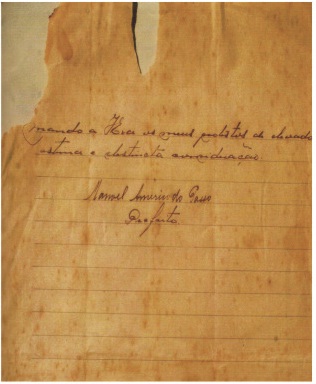 mando a V.Excia os meus protestos de elevada
estima e distincta consideração.
Manoel Americo do Passo
Prefeito.